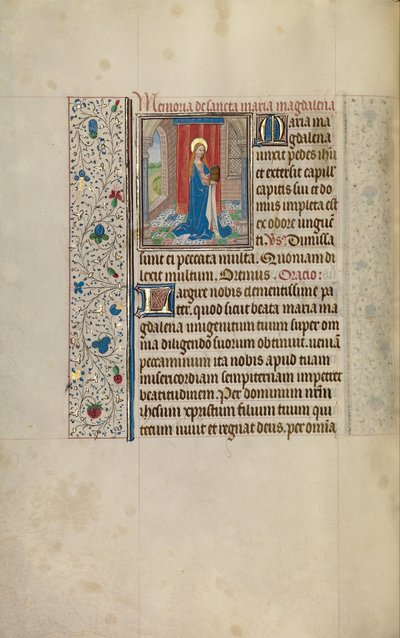 Memoria de sancta maria magdalena
Maria ma
gdalena
unxit pedes ihu
et extersit capill
capitis sui et do
mus impleta est
ex odore unguē
ti Vs. Dimissa
sunt ei peccata multa. Quoniam di
lexit multum. Oremus. Oracio:
Largire nobis clementissime pa
ter. quod sicut beata maria ma
gdalena unigenitum tuum super om
nia diligendo suorum obtinuit. veniā
peccaminum ita nobis apud tuam
misericordiam sempiternam impetret
beatitudinem. Per dominum nr̄m
ihesum xpristum filium tuum qui
tecum vivit et regnat deus. per omīa